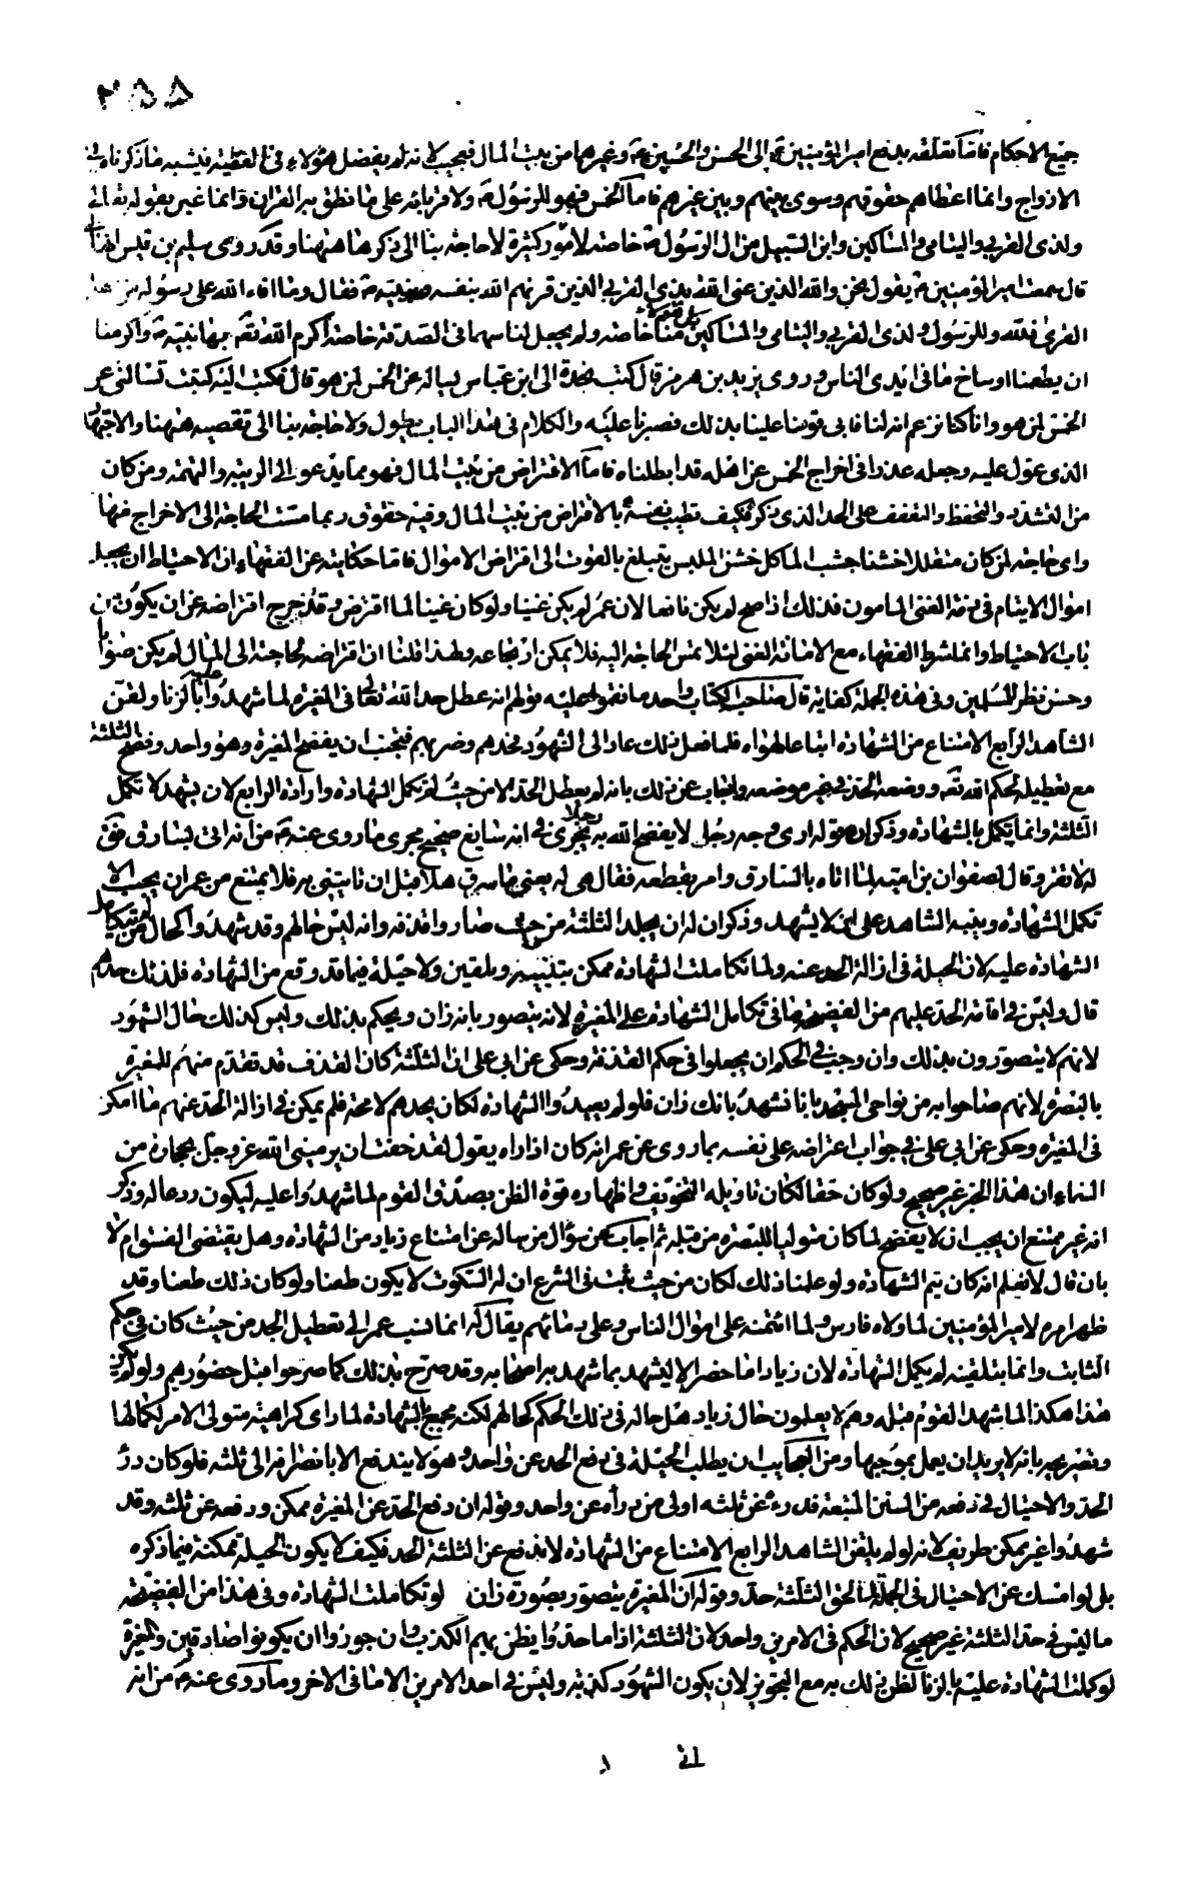 ٢٥٥
جميع الاحكام فامّا تعلّقه بدفع امير المؤمنين ع إلى الحسن والحسين ع وغيرهما من بيت المال فعجيب لانه لم يفضل هؤلاء في العطية فيشبه ما ذكرناه في
الازواج وانما اعطاهم حقوقهم وسوى بينهم وبين غيرهم فامّا الخمس فهو للرسول ص ولاقربائه على ما نطق به القران وانما غير بقوله تعالى
ولذى القربى واليتامى والمساكين وابن السبيل من ال الرسول ص خاصة لامور كثيرة لا حاجة بنا الى ذكرها هنهنا وقد روى سليم بن قيس الهلالي
قال سمعت امير المؤمنين ع يقول نحن والله الذين عنى الله بذي القربى الذين قرنهم الله بنفسه ونبيه ص فقال وما افاء الله على رسوله من اهل
القرى فلله وللرسول ولذى القربى واليتامى والمساكين منا خاصة ولم يجعل لنا سهما فى الصدقة خاصة اكرم الله تعه بها نبيه ص واكرمنا
ان يطعمنا اوساخ ما فى ايدى الناس وروى يزيد بن هرمز قال كتب نجدة الى ابن عباس يساله عن الخمس لمن هو قال فكتب اليه كتبت تسألنى عن
الخمس لمن هو وانا كنا نزعم انه لنا فابى قومنا علينا بذلك فصبرنا عليه والكلام فى هذا الباب يطول ولا حاجة بنا الى تقصيه هنهنا والاجتهاد
الذى عول عليه وجعله عذرا فى اخراج الخمس عن اهله قد ابطلناه فامّا الاقتراض من بيت المال فهو مما يدعو الى الريبة والتهمة ومن كان
من التشدد والتحفظ والتقفف على الحد الذى ذكره فكيف تطيب نفسه بالاقتراض من بيت المال وفيه حقوق ربما مسّت الحاجة الى الاخراج فيها
واى حاجة لمن كان متقللا خشنا جشب الماكل خشن الملبس يتبلغ بالقوت الى اقتراض الاموال فاما حكايته عن الفقهاء ان الاحتياط ان يجعل
اموال الايتام فى ذمة الغنى المامون فذلك اذا صح لم يكن نافعا لان عمر لم يكن غنيا ولو كان غنيا لما اقترض فقد خرج اقتراضه عن ان يكون من
باب الاحتياط وانما شرط الفقهاء مع الامانة الغنى لئلا تمس الحاجة اليه فلا يمكن ارتجاعه ولهذا قلنا ان اقتراضه لحاجته الى المال لم يكن صوابا
وحسن نظر للمسلمين وفى هذه الجملة كفاية قال صاحب الكتاب واحد ما نقموا عليه قولهم انه عطل حد الله تعالى فى المغيرة لما شهدوا عليه بالزنا ولقن
الشاهد الرابع الامتناع من الشهادة اتباعا لهواه فلما فعل ذلك عاد الى الشهود فحدهم وضربهم فتجنب ان يفضح المغيرة وهو واحد وفضح الثلثة
مع تعطيله لحكم الله تعه ووضعه الحد فى غير موضعه واجاب عن ذلك بانه لم يعطل الحد الا من حيث لم تكمل الشهادة وارادة الرابع لان يشهد لا تكمل
الثلثة وانما تكمل بالشهادة وذكر ان قوله ارى وجه رجل لا يفضح الله به رجلا يجرى في انه سايغ صحيح مجرى ما روى عنه ص من انه اتى بسارق فقال
له لا تقر وقال لصفوان بن امية لما اتاه بالسارق وامر بقطعه فقال هى له يعنى ما سرق هلا قبل ان تاتينى به فلا يمتنع من عمر ان يحب الا
تكمل الشهادة وينبه الشاهد على ان لا يشهد وذكر ان له ان يجلد الثلثة من حيث صاروا قذفة وانه ليس حالهم وقد شهدوا كحال من لم يتكامل
الشهادة عليه لان الحيلة فى ازالة الحد عنه ولما تكاملت الشهادة ممكن بتنبيه وتلقين ولا حيلة فيما قد وقع من الشهادة فلذلك حدهم
قال وليس فى اقامة الحد عليهم من الفضيحة ما فى تكامل الشهادة على المغيرة لانه يتصور بانه زان ويحكم بذلك وليس كذلك حال الشهود
لانهم لا يتصورون بذلك وان وجب فى الحكم ان يجعلوا فى حكم القذفة وحكى عن ابى على ان الثلثة كان القذف قد تقدم منهم للمغيرة
بالبصرة لانهم صاحوا به من نواحى المسجد بانا نشهد بانك زان فلو لم يعيدوا الشهادة لكان يحدهم لا محة فلم يمكن فى ازالة الحد عنهم ما امكن
فى المغيرة وحكى عن ابى على فى جواب اعتراضه على نفسه بما روى عن عمر انه كان اذا راه يقول لقد خفت ان يرمينى الله عز وجل بحجارة من
السماء ان هذا الخبر غير صحيح ولو كان حقا لكان تاويله التخويف واظهاره قوة الظن بصدق القوم لما شهدوا عليه ليكون ردعا له وذكر
انه غير ممتنع ان يحب ان لا يفضح لما كان متوليا للبصرة من قبله ثم اجاب عن سؤال من ساله عن امتناع زياد من الشهادة وهل يقتضى الفسق ام لا
بان قال لا نعلم انه كان يتم الشهادة ولو علمنا ذلك لكان من حيث ثبت فى الشرع ان له السكوت لا يكون طعنا ولو كان ذلك طعنا وقد
ظهر امره لامير المؤمنين لما ولاه فارس ولما ائتمنه على اموال الناس وعلى دمائهم يقال له انما نسب عمر الى تعطيل الحد من حيث كان فى حكم
الثابت وانما بتلقينه لم يكمل الشهادة لان زيادا ما حضر الا ليشهد بما شهد به اصحابه وقد صرح بذلك كما صرحوا قبل حضورهم ولو لم يكن
هذا هكذا لما شهد القوم قبله وهم لا يعلمون حال زياد هل حاله فى ذلك الحكم كحالهم لكنه محجج الشهادة لما راى كراهية متولى الامر لكمالها
وتصريحه بانه لا يريد ان يعمل بموجبها ومن العجايب ان يطلب الحيلة فى دفع الحد عن واحد وهو لا يندفع الا بانصرافه الى ثلثة فلو كان درؤ
الحد والاحتيال فى دفعه من السنن المتبعة فدرءه عن ثلثه اولى من درأه عن واحد وقوله ان دفع الحد عن المغيرة ممكن ودفعه عن ثلثه وقد
شهدوا غير ممكن طريف لانه لو لم يلقن الشاهد الرابع الامتناع من الشهادة لاندفع عن الثلثة الحد فكيف لا يكون الحيلة ممكنة فيما ذكره
بلى لو امسك عن الاحتيال فى الجملة لما لحق الثلثة حد وقوله ان المغيرة يتصور بصورة زان لو تكاملت الشهادة وفى هذا من الفضيحة
ما ليس فى حد الثلثة غير صحيح لان الحكم فى الامرين واحد لان الثلثة اذا ما حدوا يظن بهم الكذب وان جوزوا ان يكونوا صادقين والمغيرة
لو كملت الشهادة عليه بالزنا لظن ذلك به مع التجويز لان يكون الشهود كذبة وليس فى احد الامرين الا ما فى الاخر وما روى عنه ع من انه